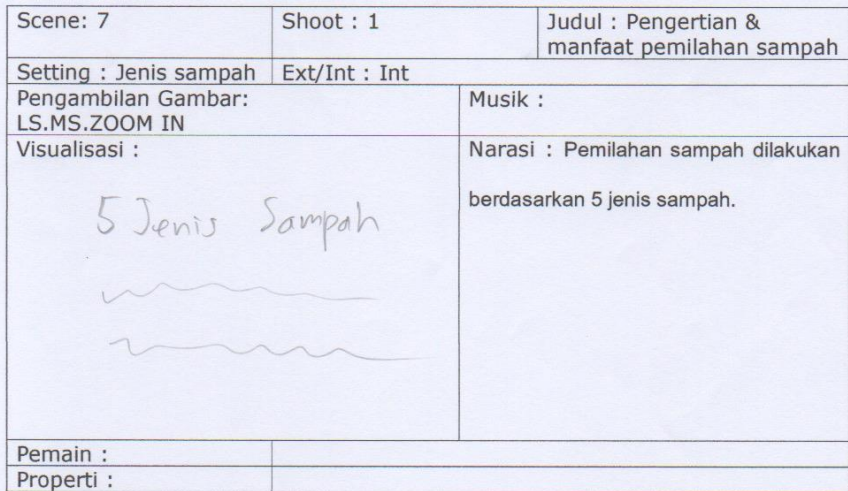 Scene: 7
Shoot : 1
Judul : Pengertian &
manfaat pemilahan sampah
Setting : Jenis sampah
Ext/Int : Int
Pengambilan Gambar:
LS.MS.ZOOM IN
Musik :
Visualisasi :
5 Jenis Sampah
Narasi : Pemilahan sampah dilakukan
berdasarkan 5 jenis sampah.
Pemain :
Properti :